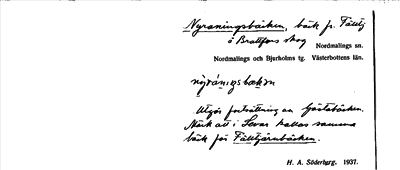 Nyråningsbäcken, bäck fr. Fälltj
å Brattfors skog
Nordmalings sn.
Nordmalings och Bjurholms tg. Västerbottens län.
nyråniŋsbækən
Utgör fortsättning av Gästabäcken.
Närk att i Levar kallas samma
bäck för Fälltjärnbäcken.
H. A. Söderberg. 1937.